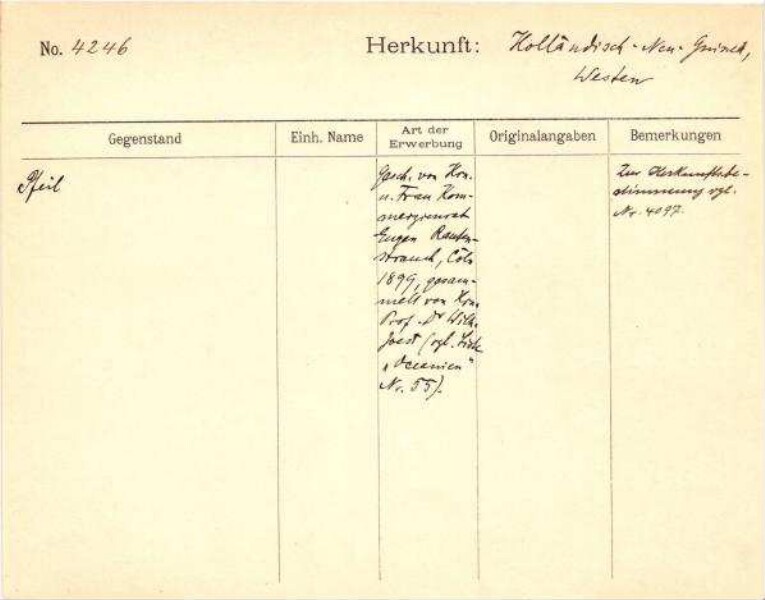 No. 4246
Herkunft: Holländisch-Neu-Guinea,
Westen
Gegenstand
Einh. Name
Art der
Erwerbung
Originalangaben
Bemerkungen
Pfeil
Gesch. von Hrn.
u. Frau Kom-
merzienrat
Eugen Rauten-
strauch, Cöln
1899, gesam-
melt von Hrn.
Prof. Dr Wilh.
Joest (vgl. Liste
"Oceanien"
Nr. 55).
Zur Herkunftsbe-
stimmung vgl.
Nr. 4097.